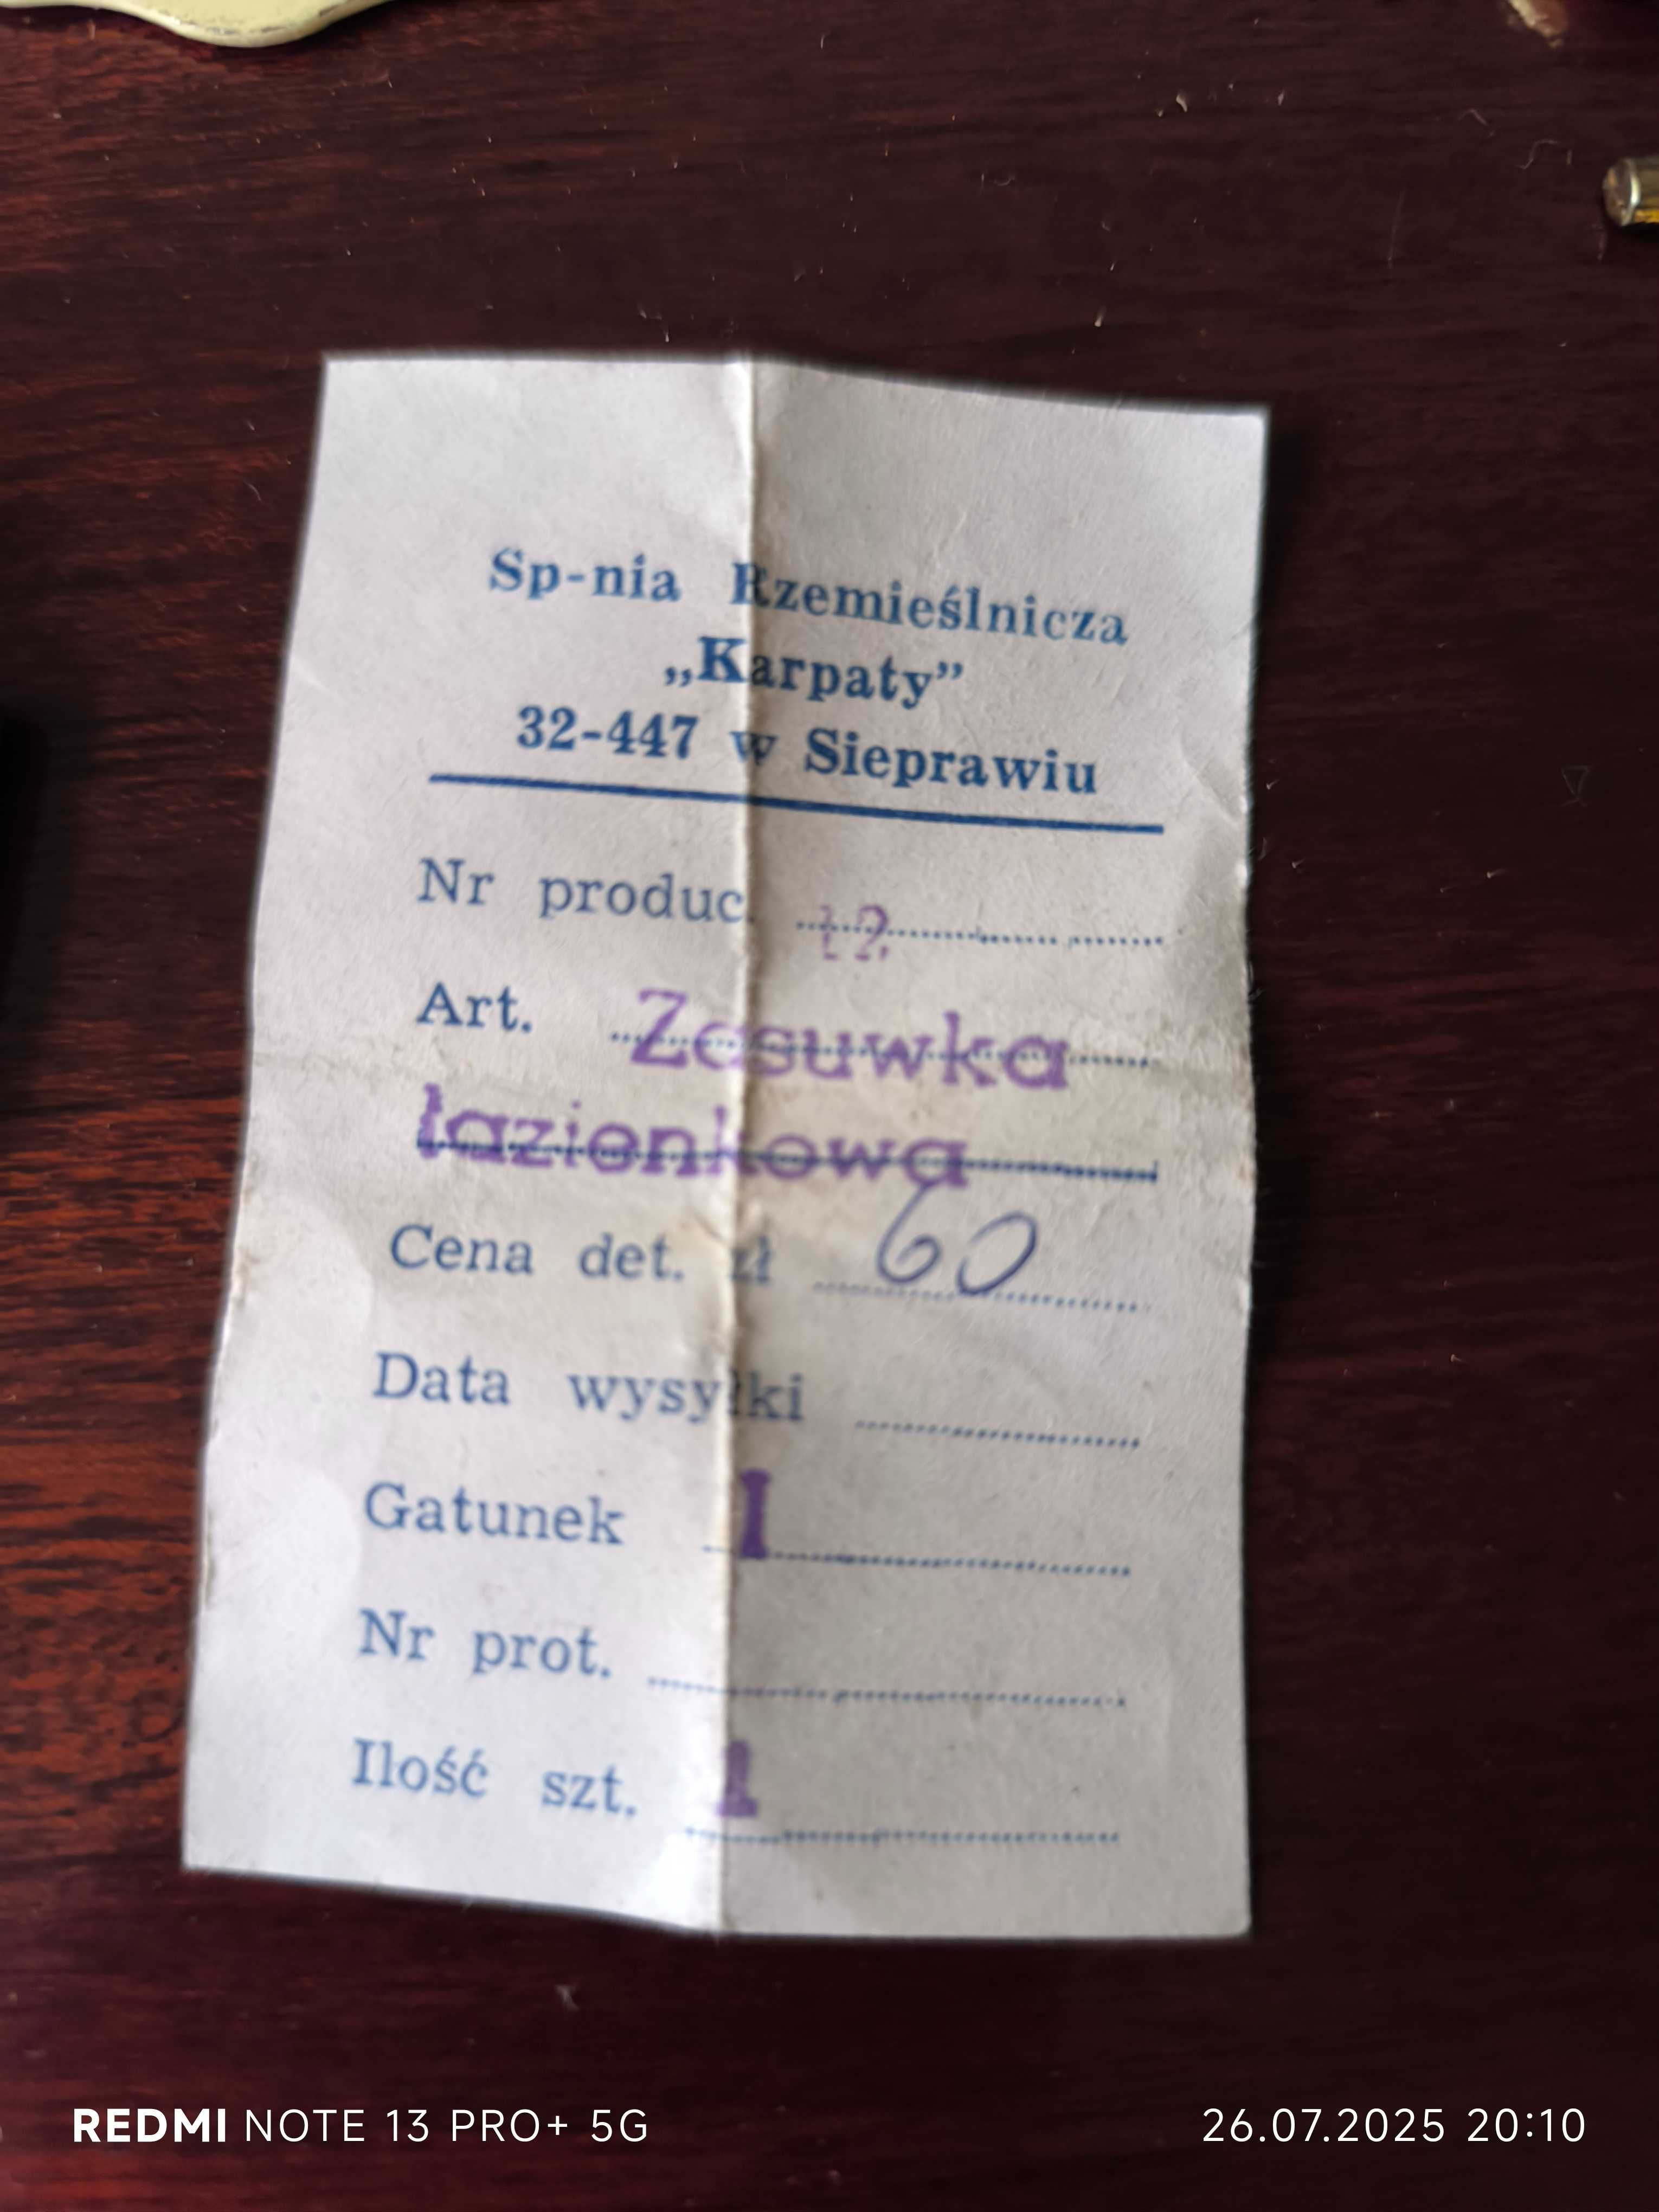 Sp-nia Rzemieślnicza
„Karpaty”
32-447 w Sieprawiu
Nr produc. 12
Art. Zasuwka
łazienkowa
Cena det. zł 60
Data wysyłki
Gatunek I
Nr prot.
Ilość szt. 1
REDMI NOTE 13 PRO+ 5G
26.07.2025 20:10